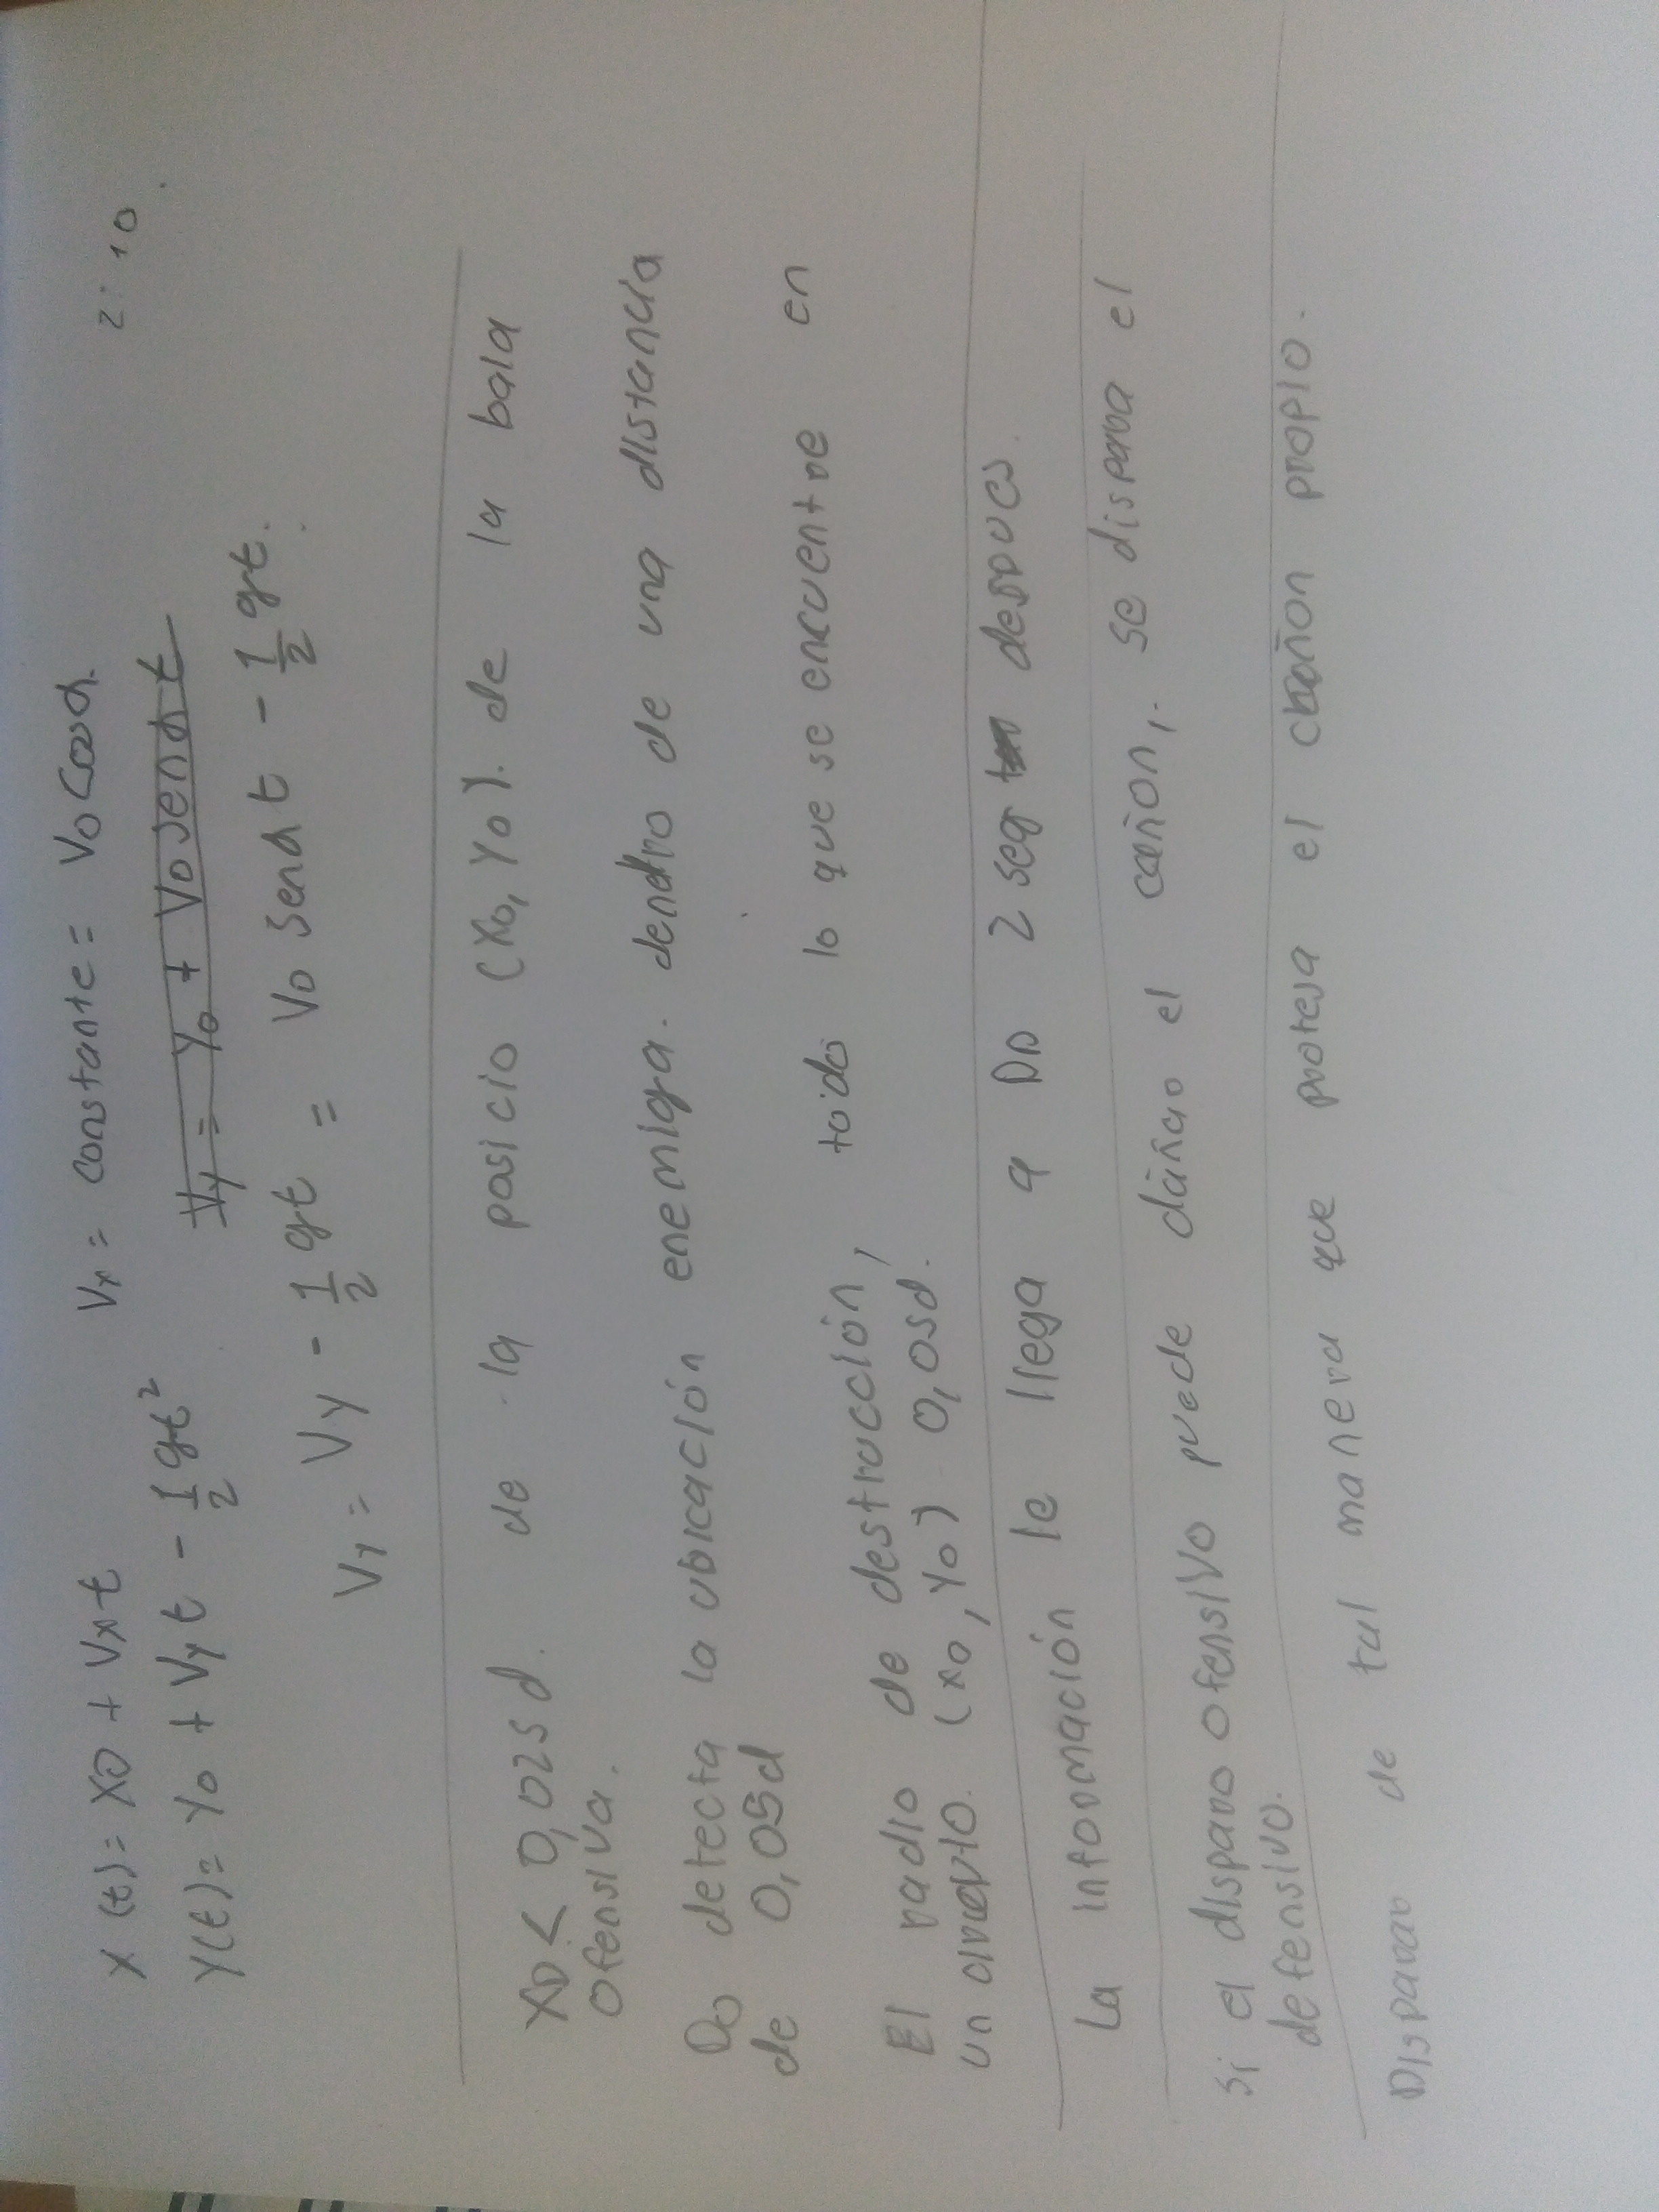 x (t) = x0 + Vxt    Vx = constante = Vo Cosα.    2:10.
Y(t) = Yo + Vyt - 1/2 gt²    Vy = Yo + Vo senαt
Vy = Vy - 1/2 gt = Vo senαt - 1/2 gt.
XD < 0,025 d. de la posicio (Xo, Yo). de la bala
Ofensiva.
Do detecta la ubicación enemiga. dentro de una distancia
de 0,05d
El radio de destrucción, todo lo que se encuentre en
un circulo. (xo, Yo) 0,05d.
La información le llega a Do 2 seg despues.
Si el disparo ofensivo puede dañao el cañon, se dispara el
defensivo.
Disparar de tal manera que proteja el cañon propio.